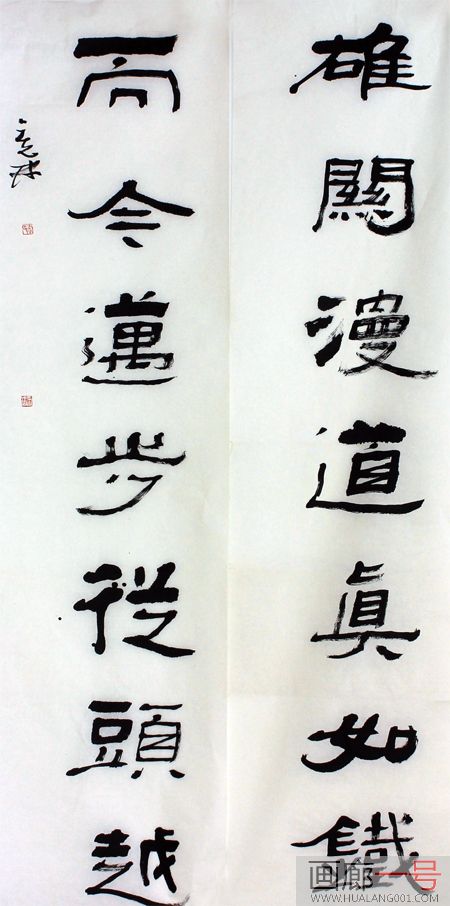 雄關漫道真如鐵
而今邁步從頭越
画廊一号
WWW.HUALANG001.COM